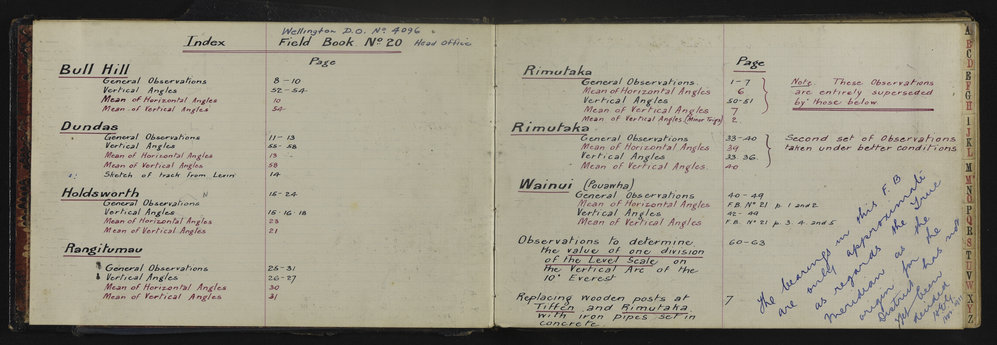 Wellington D.O. No 4096
Index Field Book No 20 Head Office
Page
Bull Hill
General Observations 8-10
Vertical Angles 52-54
Mean of Horizontal Angles 10
Mean of Vertical Angles 54
Dundas
General Observations 11-13
Vertical Angles 55-58
Mean of Horizontal Angles 13
Mean of Vertical Angles 58
Sketch of track from Levin 14
Holdsworth 15-24
General Observations
Vertical Angles 15-16-18
Mean of Horizontal Angles 23
Mean of Vertical Angles 21
Rangitumau
General Observations 25-31
Vertical Angles 26-27
Mean of Horizontal Angles 30
Mean of Vertical Angles 31
Page
Rimutaka
General Observations 1-7
Mean of Horizontal Angles 6
Vertical Angles 50-51
Mean of Vertical Angles 7
Mean of Vertical Angles (Minor Trigs) 2
Note These Observations
are entirely superseded
by those below
Rimutaka
General Observations 33-40
Mean of Horizontal Angles 39
Vertical Angles 33-36
Mean of Vertical Angles 40
Second set of Observations
taken under better conditions
Wainui (Pouawha)
General Observations 40-49
Mean of Horizontal Angles F.B. No 21 p. 1 and 2
Vertical Angles 42-49
Mean of Vertical Angles F.B. No 21 p. 3. 4. and 5
Observations to determine 60-63
the value of one division
of the Level Scale on
the Vertical Arc of the
10" Everest
Replacing wooden posts at 7
Tiffen and Rimutaka
with iron pipes set in
concrete
The bearings in this F.B
are only approximate
as regards the True
meridian as the
origin for the
District has not
yet been
revised
A
B
C
D
E
F
G
H
I
J
K
L
M
Mc
N
O
P
Q
R
S
T
U
V
W
X
Y
Z